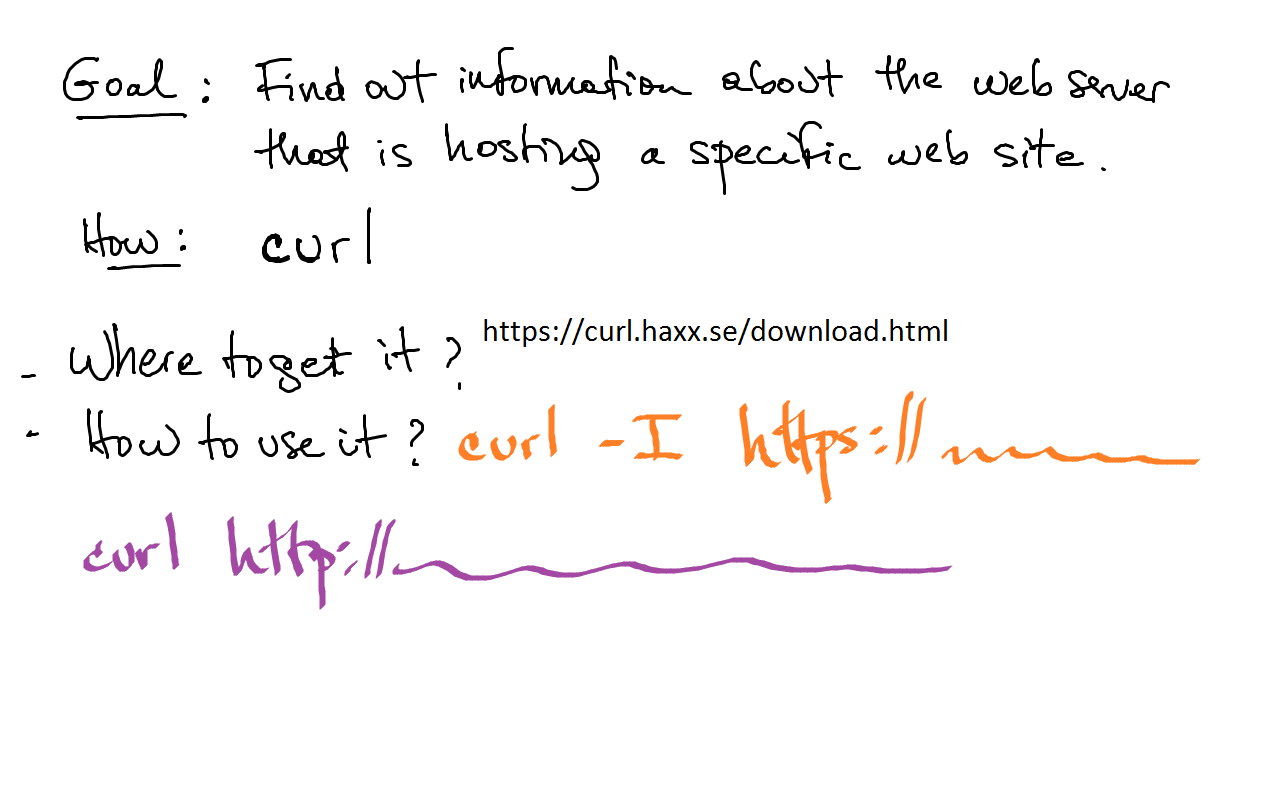 Goal: Find out information about the web server
that is hosting a specific web site.
How: curl
- Where to get it? https://curl.haxx.se/download.html
- How to use it? curl -I https://
curl http://